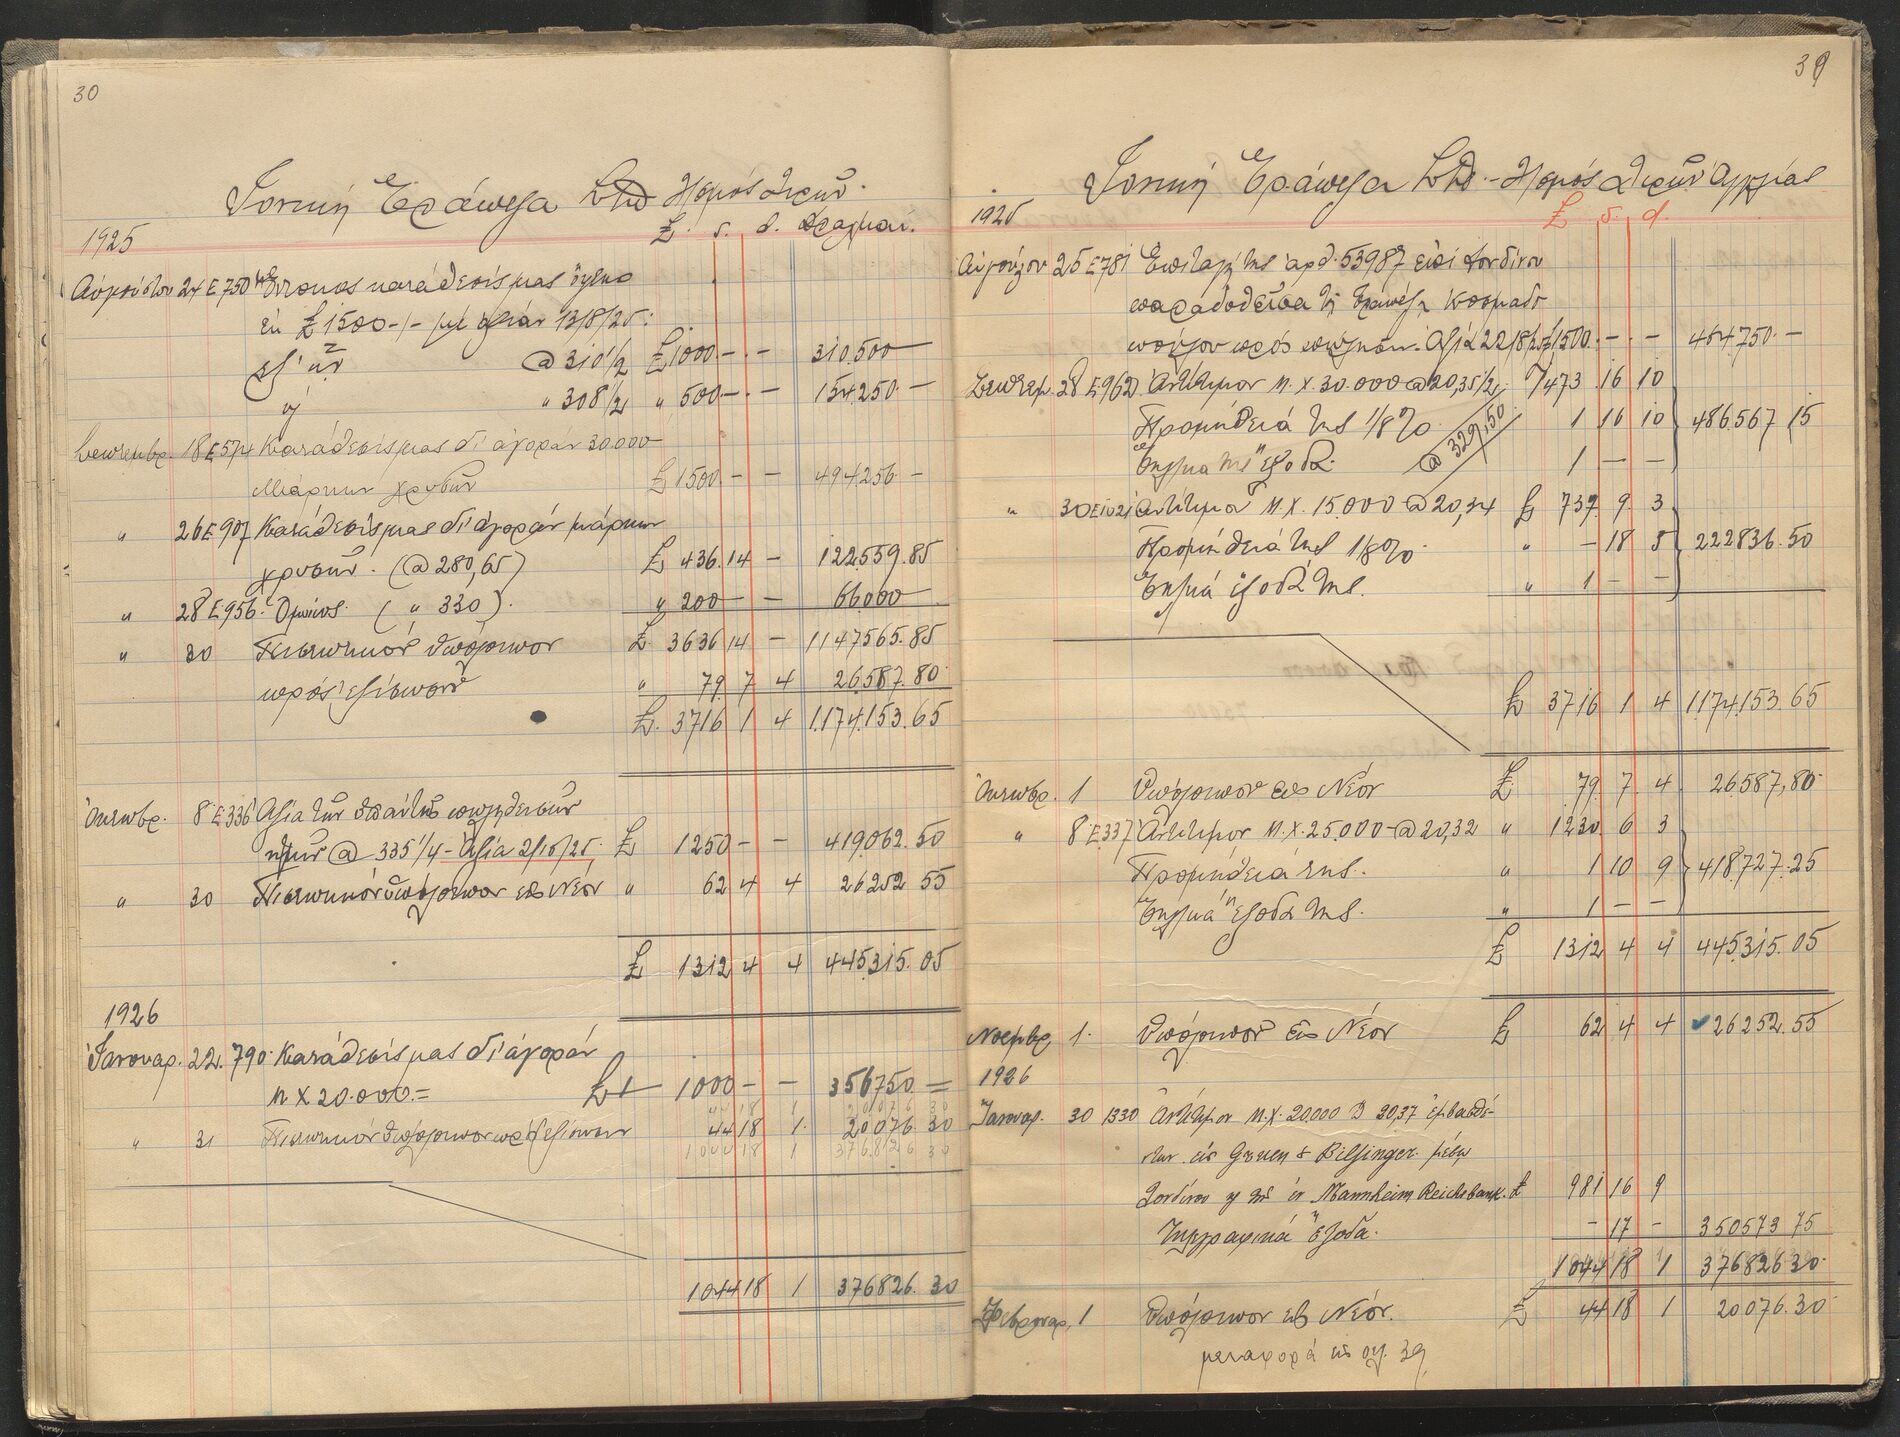 30
Ιονική Τράπεζα Ltd Λ/σμός Λιρών.
1925
£. s. d. Δραχμαί.
Αὐγούστου 24 Ε 750 Ἔντοκος κατάθεσίς μας
ἐκ £ 1500-/- μὲ ἀξίαν 13/8/25:
ἐξ' ὧν @ 310 1/2 £ 1000.-.- 310.500 —
" 308 1/2 " 500.-.- 154.250. —
Σεπτεμβρ. 18 Ε 574 Κατάθεσίς μας δι' ἀγορὰν 30.000
Μάρκων χρυσῶν £ 1500. - - 494.256 —
" 26 Ε 907 Κατάθεσίς μας δι' ἀγορὰν μάρκων
χρυσῶν. (@ 280,65) £ 436.14 — 122.559.85
" 28 Ε 956. Ὁμοίως. ( " 330 ). " 200 — — 66.000 —
" 30 Πιστωτικὸν ὑπόλοιπον £. 3636 14 — 1147565.85
πρὸς ἐξίσωσιν " 79 7 4 26.587.80
£. 3716 1 4 1.174.153.65
Ὀκτωβρ. 8 Ε 336 Ἀξία τῶν ὑπ' αὐτῆς πωληθεισῶν
@ 335 1/4 - Ἀξία 2/10/25. £ 1250 — — 419.062.50
" 30 Πιστωτικὸν ὑπόλοιπον εἰς Νέον " 62 4 4 26252 55
£ 1312 4 4 445.315.05
1926
Ἰανουαρ. 22. 790. Κατάθεσίς μας δι' ἀγορὰν
Μ Χ 20.000.= £ 1000 — — 356750. =
" 31 Πιστωτικὸν ὑπόλοιπον πρὸς ἐξίσωσιν 44 18 1. 20076. 30
1044 18 1 376826. 30
39
Ιονική Τράπεζα Ltd. - Λ/σμός Λιρών Αγγλίας
1925
£ s. d.
Αὐγούστου 25 Ε 781 Ἐπιταγή της ἀρθ. 53987 ἐπὶ Λονδίνου
παραδοθεῖσα τῇ Τραπέζῃ Κοσμαδο
πούλου πρὸς πώλησιν. Ἀξία 22/8/25 £ 1500. — . — 464.750. —
Σεπτεμ. 28 Ε 962 Ἀντίτιμον Μ. Χ. 30.000 @ 20,35 1/2. 1473 16 10
Προμήθειά της 1/8 % 1 16 10 486.567 15
Τηλ/κά της ἔξοδα. @ 329,50 1 — —
" 30 Ε 1021 Ἀντίτιμον Μ. Χ. 15.000 @ 20,34 £ 737. 9. 3
Προμήθειά της 1/8 % " — 18 5 222836.50
Τηλ/κά ἔξοδά της. " 1 — —
£ 3716 1 4 1174.153.65
Ὀκτωβρ. 1 Ὑπόλοιπον εἰς Νέον £. 79. 7. 4 26587,80
" 8 Ε 337 Ἀντίτιμον Μ. Χ. 25.000 - @ 20,32 " 1230 6 3
Προμήθειά της. " 1 10 9 418.727.25
Τηλ/κά ἔξοδά της. " 1 — —
£ 1312 4 4 445.315.05
Νοεμβρ. 1. Ὑπόλοιπον εἰς Νέον £ 62 4 4 26252.55
1926
Ἰανουαρ. 30 1330 Ἀντίτιμον Μ.Χ. 20.000 20,37 ἐμβασθέ-
ντων εἰς Gruen & Bilfinger. μέσῳ
Λονδίνου τῇ ἐν Mannheim Reichsbank. £ 981 16 9
Τηλεγραφικὰ ἔξοδα. — 17 — 350573 75
1044 18 1 376826 30.
Φεβρουαρ. 1 Ὑπόλοιπον εἰς Νέον. £ 44 18 1 20076.30
μεταφορὰ εἰς σελ. 39